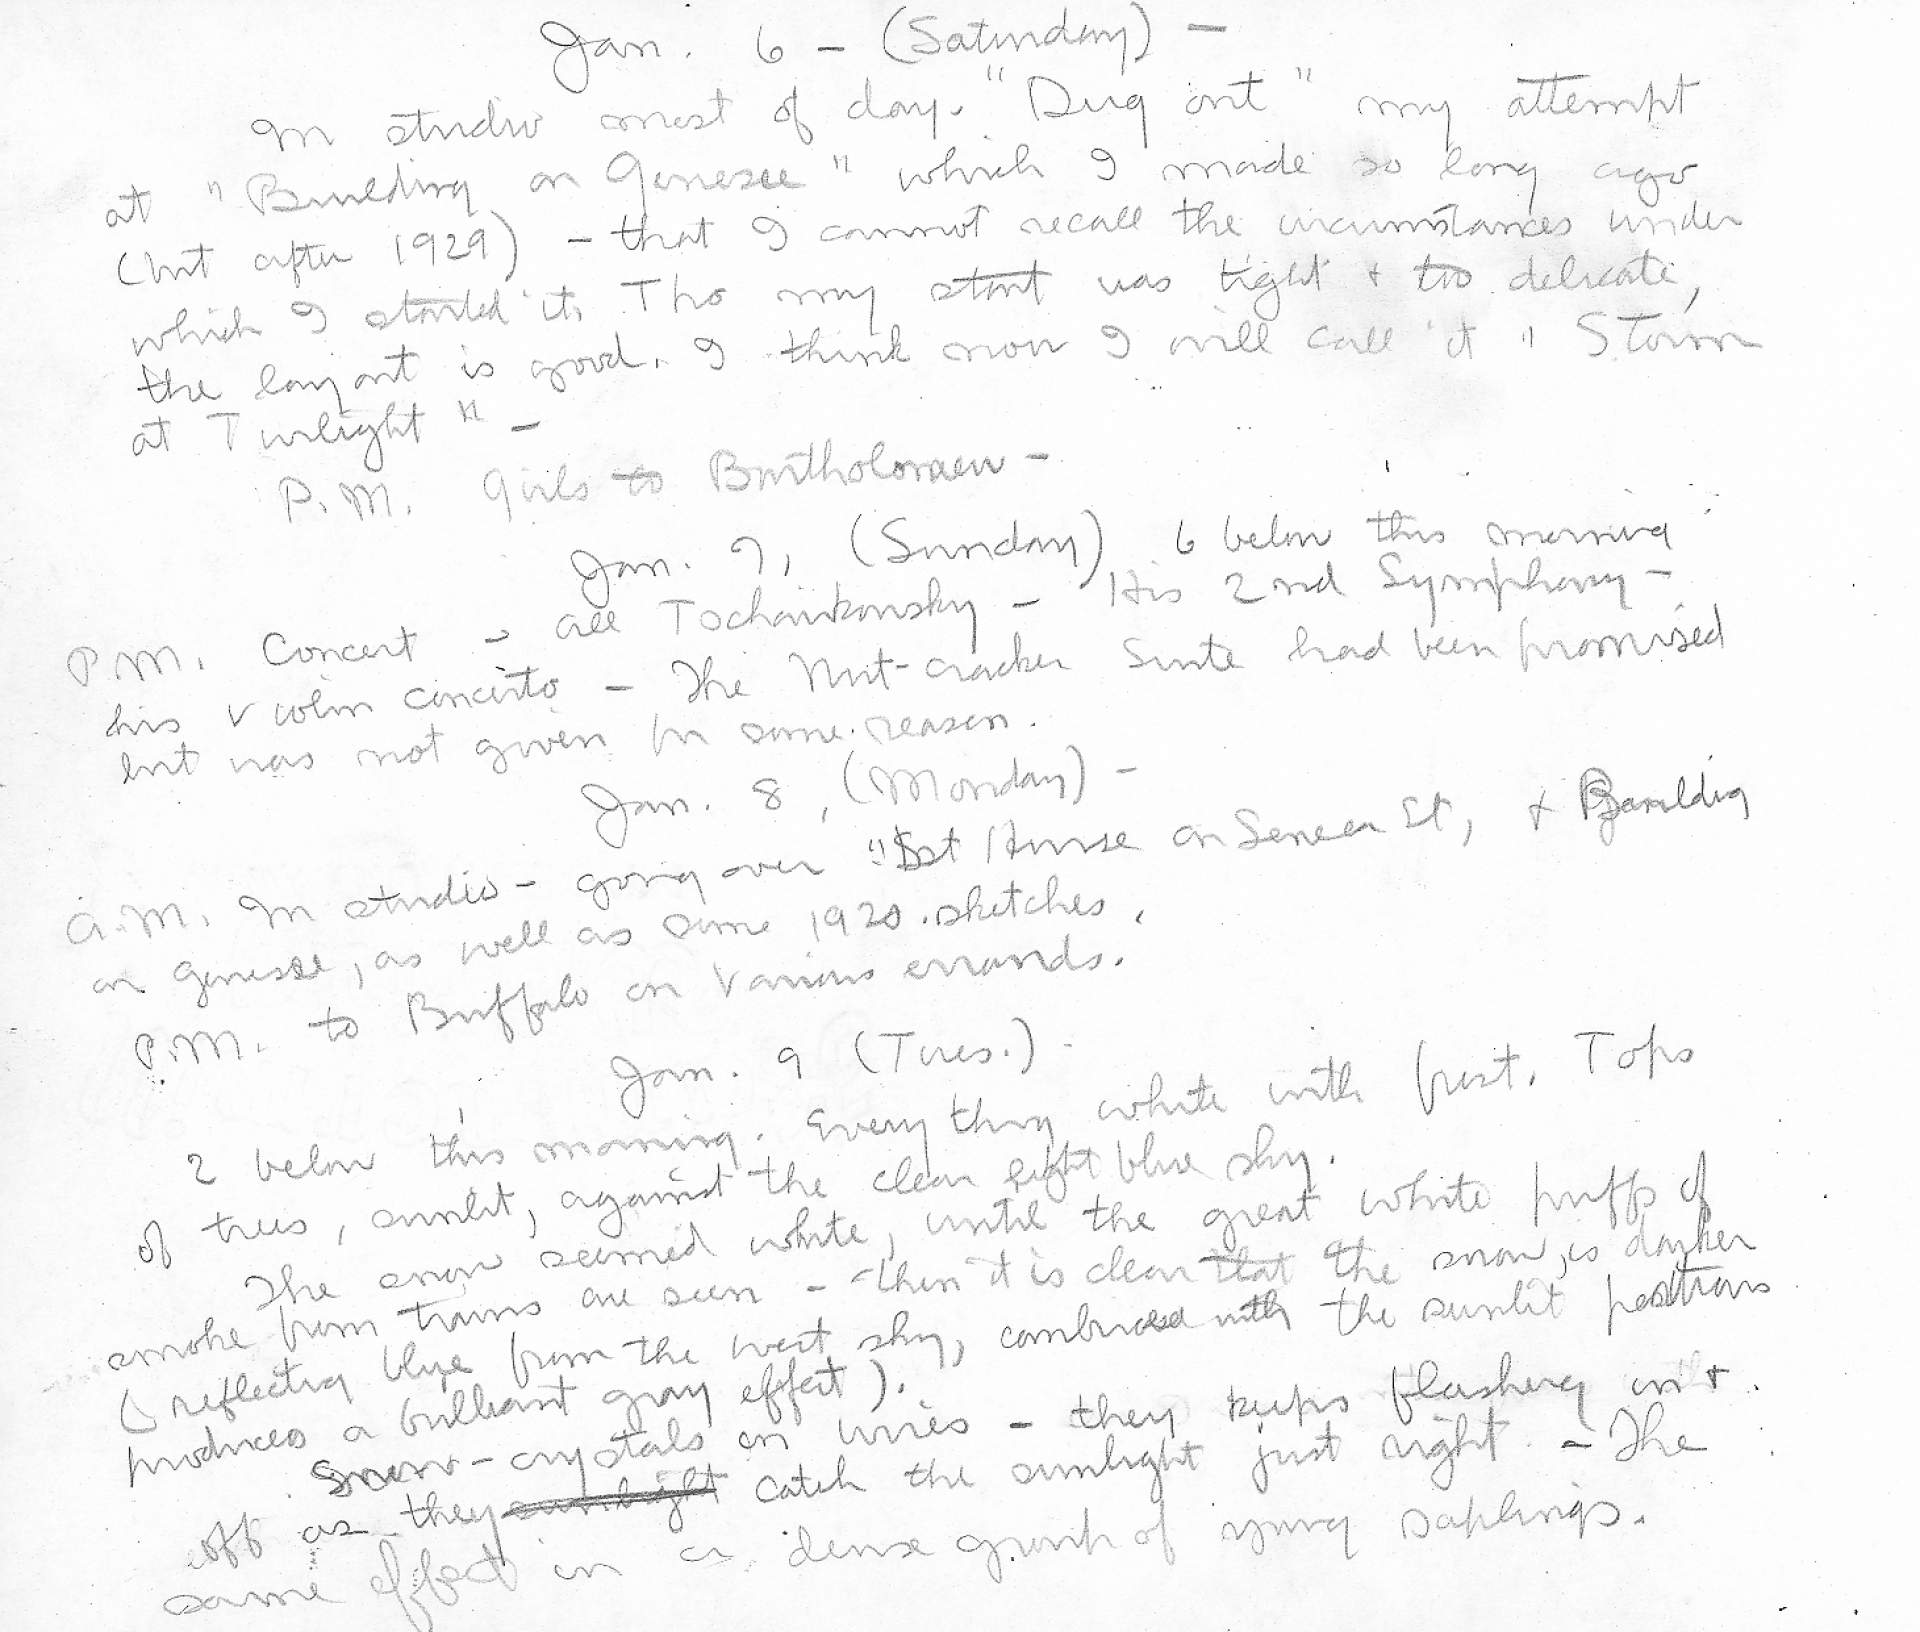 Jan. 6 - (Saturday) -
In studio most of day. "Dug out" my attempt
at "Building on Genesee" which I made so long ago
(but after 1929) - that I cannot recall the circumstances under
which I started it. Tho my start was tight & too delicate,
the layout is good. I think now I will call it "Storm
at Twilight" -
P.M. Girls to Bartholomew -
Jan. 7, (Sunday) 6 below this morning
P.M. Concert - all Tschaikowsky - His 2nd Symphony -
his violin concerto - The Nut-cracker Suite had been promised
but was not given for some reason.
Jan. 8, (Monday) -
A.M. In studio - going over "1st House on Seneca St, & Building
on Genesee, as well as some 1920 sketches.
P.M. to Buffalo on various errands.
Jan. 9 (Tues.) -
2 below this morning. Everything white with frost. Tops
of trees, sunlit, against the clear light blue sky.
The snow seemed white, until the great white puffs of
smoke from trains are seen - then it is clear that the snow is darker
(reflecting blue from the west sky, combined with the sunlit portions
produces a brilliant gray effect).
Snow-crystals on wires - they keeps flashing on &
off as they sunlight catch the sunlight just right - The
same effect in a dense group of young saplings.